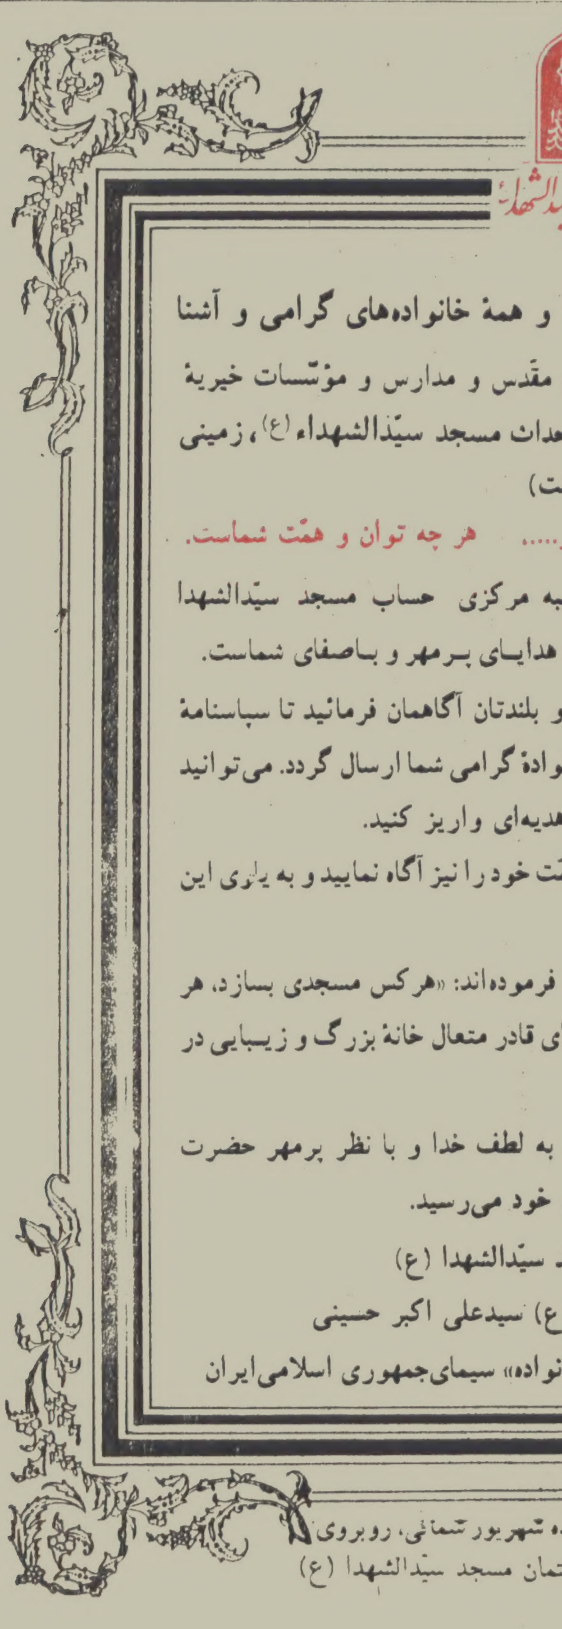 و همهٔ خانواده‌های گرامی و آشنا
مقدّس و مدارس و مؤسّسات خیریهٔ
حداث مسجد سیّدالشهداء (ع)، زمینی
ت)
..... هر چه توان و همّت شماست.
به مرکزی حساب مسجد سیّدالشهدا
هدایای پرمهر و باصفای شماست.
و بلندتان آگاهمان فرمائید تا سپاسنامهٔ
وادهٔ گرامی شما ارسال گردد. می‌توانید
هدیه‌ای واریز کنید.
خود را نیز آگاه نمایید و به یاری این
فرموده‌اند: «هرکس مسجدی بسازد، هر
ی قادر متعال خانهٔ بزرگ و زیبایی در
به لطف خدا و با نظر پرمهر حضرت
خود می‌رسید.
سیّدالشهدا (ع)
ع) سیدعلی اکبر حسینی
نواده» سیمای جمهوری اسلامی ایران
ه شهریور شمالی، روبروی
تمان مسجد سیّدالشهدا (ع)